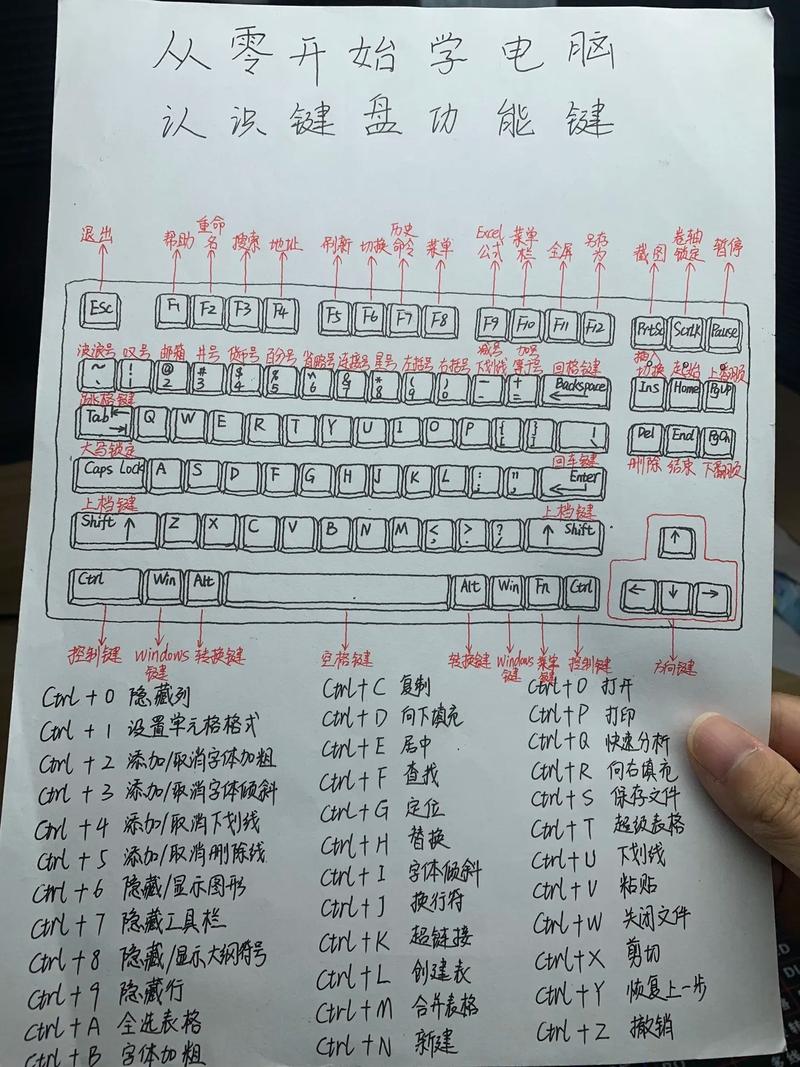 从零开始学电脑
认识键盘功能键
退出 帮助 重命名 搜索 地址 刷新 切换 历史命令 菜单 Excel公式 菜单栏 全屏 另存为 截图 卷轴锁定 暂停
Esc F1 F2 F3 F4 F5 F6 F7 F8 F9 F10 F11 F12 PrtSc ScrLK Pause
波浪号 叹号 邮箱 井号 货币号 百分号 省略号 连接号 星号 左括号 右括号 减号下划线 加号等于号 回格键 插入切换 走始 上翻页
~ ` ! 1 @ 2 # 3 $ 4 % 5 ^ 6 & 7 * 8 ( 9 ) 0 _ - + = Backspace Ins Home PgUp
跳格键
Tab Q W E R T Y U I O P { [ } ] | \ Del End PgDn
大写锁定 回车键 删除 结束 下翻页
Caps Lock A S D F G H J K L : ; " , Enter
上档键 上档键
Shift ↑ Z X C V B N M < , > . ? / ↑ Shift ↑
Ctrl Win Alt Alt Win Fn Ctrl ← ↓ →
控制键 Windows键 转换键 空格键 转换键 Windows键 菜单键 控制键 方向键
Ctrl + 0 隐藏列
Ctrl + 1 设置单元格格式
Ctrl + 2 添加/取消字体加粗
Ctrl + 3 添加/取消字体倾斜
Ctrl + 4 添加/取消下划线
Ctrl + 5 添加/取消删除线
Ctrl + 6 隐藏/显示图形
Ctrl + 7 隐藏工具栏
Ctrl + 8 隐藏/显示大纲符号
Ctrl + 9 隐藏行
Ctrl + A 全选表格
Ctrl + B 字体加粗
Ctrl + C 复制
Ctrl + D 向下填充
Ctrl + E 居中
Ctrl + F 查找
Ctrl + G 定位
Ctrl + H 替换
Ctrl + I 字体倾斜
Ctrl + J 换行符
Ctrl + K 超链接
Ctrl + L 创建表
Ctrl + M 合并表格
Ctrl + N 新建
Ctrl + O 打开
Ctrl + P 打印
Ctrl + Q 快速分析
Ctrl + R 向右填充
Ctrl + S 保存文件
Ctrl + T 超级表格
Ctrl + U 下划线
Ctrl + V 粘贴
Ctrl + W 关闭文件
Ctrl + X 剪切
Ctrl + Y 恢复上一步
Ctrl + Z 撤销